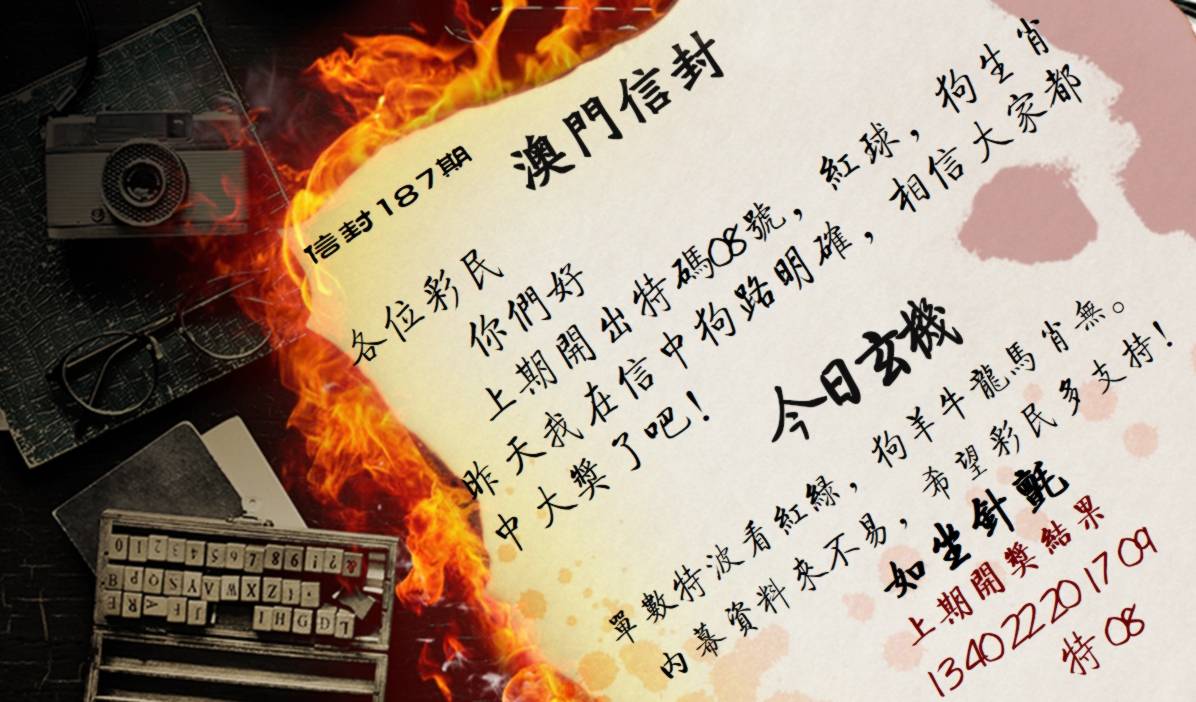 澳門信封
信封187期
各位彩民
你們好
上期開出特碼08號，紅球，狗生肖
昨天我在信中狗路明確，相信大家都
中大獎了吧！
今日玄機
單數特波看紅緑，狗羊牛龍馬肖無。
内幕資料來不易，希望彩民多支持！
如坐針氈
上期開獎結果
13 40 22 20 17 09
特 08
0 1 2 3 4 5 6 7 8 9 ! ? &